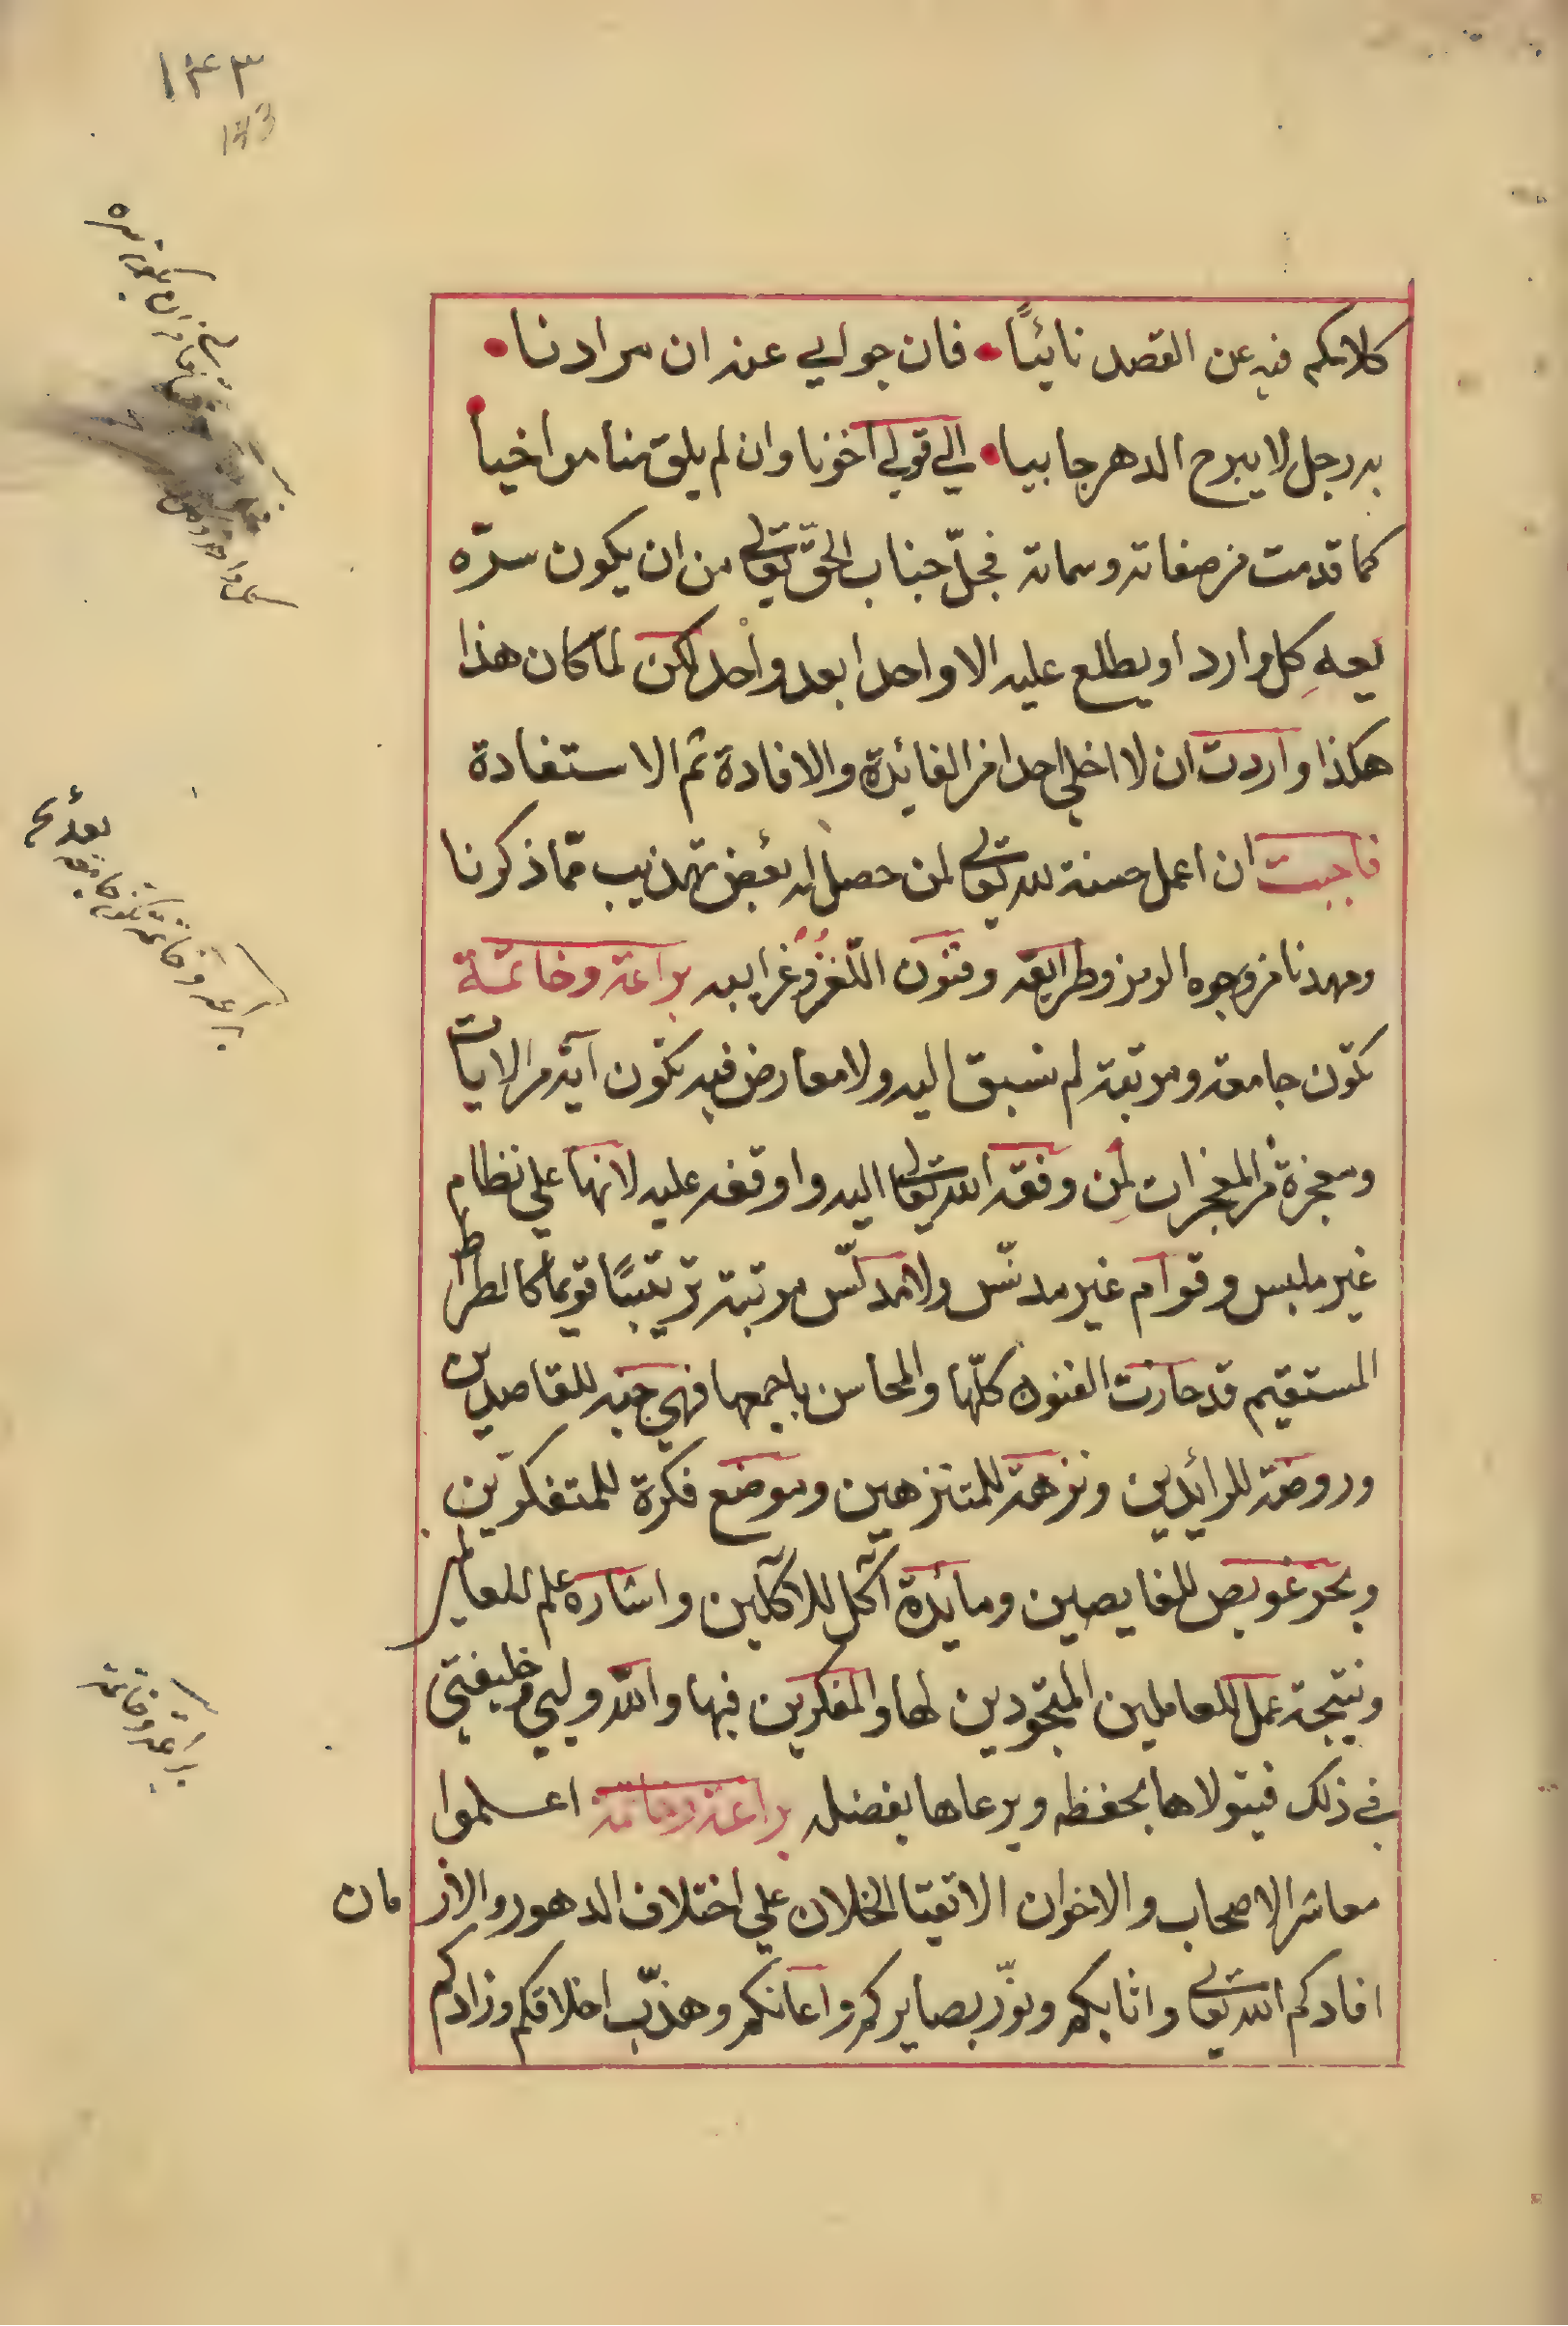 ١٤٣
143
كلامكم فيه عن القصد نائياً • فان جوابي عنه ان مرادنا •
به رجل لا يبرح الدهر جابيا • الي قولي اخونا وان لم يلق منا مواخياً
كما قدمت من صفاته وسماته فجلّ جناب الحقّ تعالى من ان يكون سرّه
يعهِ كل وارد او يطلع عليه الا واحدا بعد واحد لكن لما كان هذا
هكذا واردت ان لا اخلي احدا من الفائدة والافادة ثم الاستفادة
فاجبت ان اعمل حسنة لله تعالى لمن حصل له بعض تهذيب مما ذكرنا
ومهدنا من وجوه الرمز وطرايقه وفنون اللّغز وغرايبه براعة وخاتمة
تكون جامعة ومرتبة لم نسبق اليه ولا معارض فيه تكون آية من الايات
ومعجزة من المعجزات لمن وفقه الله تعالى اليه واوقفه عليه لانها علي نظام
غير ملبس وقوام غير مدنّس ولا مدلّس مرتبة ترتيبًا قويما كالصراط
المستقيم قد حازت الفنون كلّها والمحاسن باجمعها فهي جنة للقاصدين
وروضة للرائدين ونزهة للمتنزهين وموضع فكرة للمتفكرين
وبحر غويص للغايصين ومائدة اكل للاكلين واشارة علم للعالمين
ونتيجة عمل للعاملين المتجردين لها والمفكرين فيها والله وليي وخليفتي
في ذلك فيتولاها بحفظه ويرعاها بفضله براعة وخاتمة اعلموا
معاشر الاصحاب والاخوان الاتقيا الخلان علي اختلاف الدهور والازمان
افادكم الله تعالى واثابكم ونوّر بصايركم واعانكم وهذّب اخلاقكم وزادكم
براعة وخاتمة تكون جامعة
براعة وخاتمة